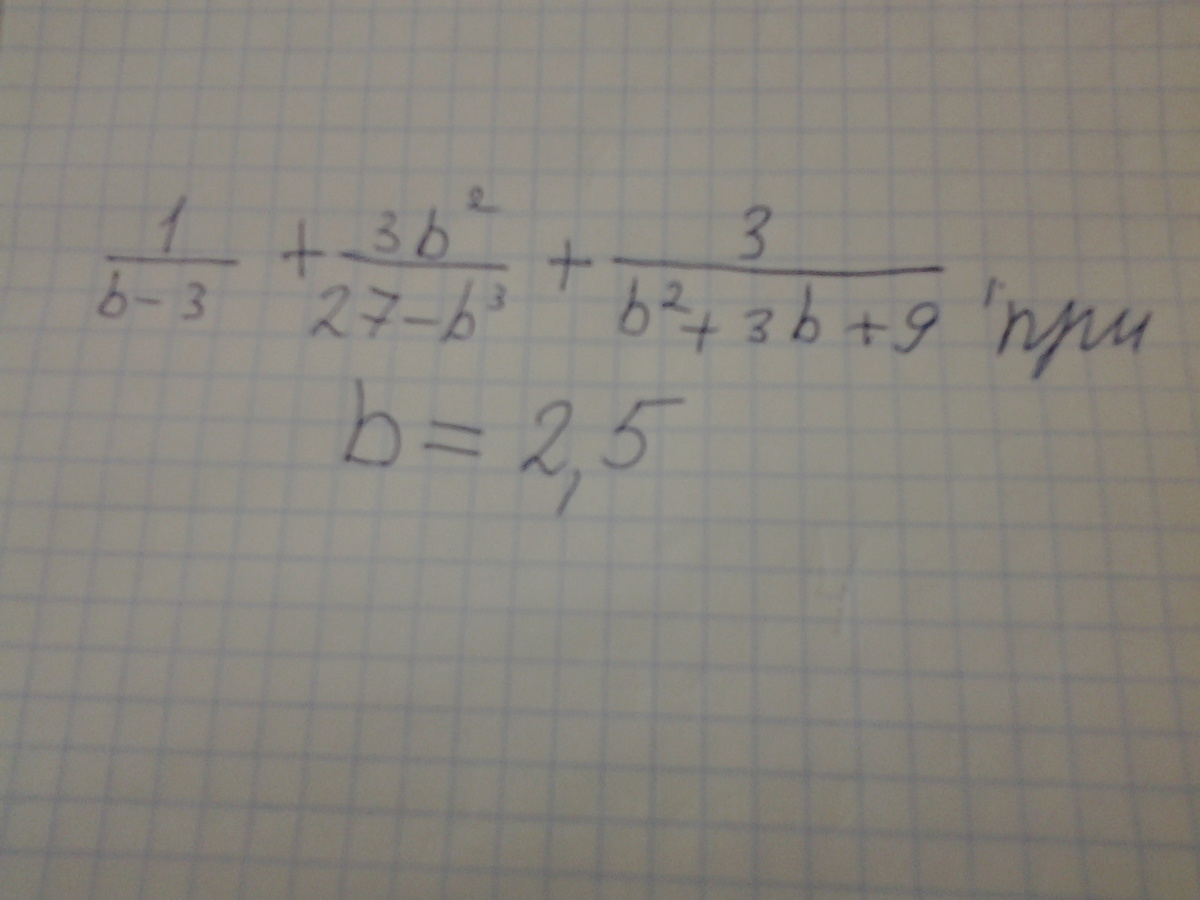 1/(b-3) + 3b²/(27-b³) + 3/(b²+3b+9), при
b = 2,5